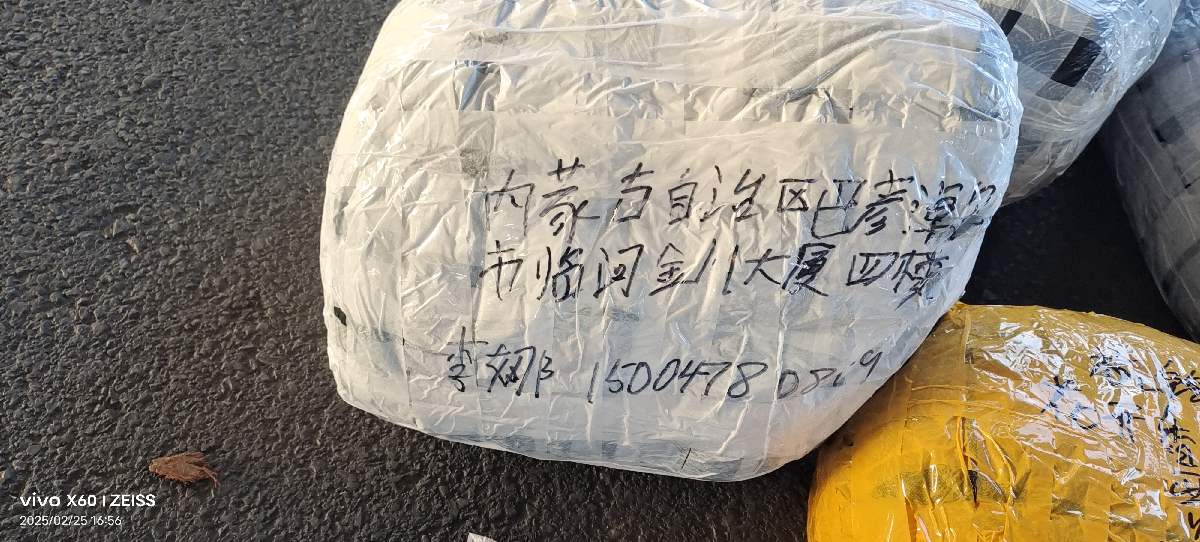 内蒙古自治区巴彦淖尔
市临河金川大厦四楼
李娜 15004780869
vivo X60 | ZEISS
2025/02/25 16:56